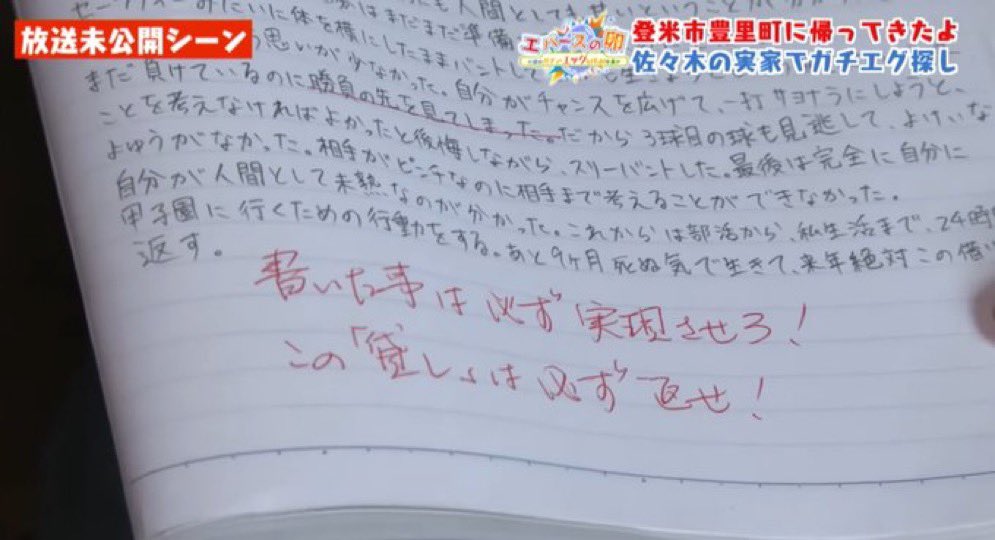 放送未公開シーン
エバースの卵
登米市豊里町に帰ってきたよ
佐々木の実家でガチエグ探し
体を横にしたままバントして
思いが少なかった。自分がチャンスを広げて、一打サヨナラにしようと、
まだ負けているのに勝負の先を見てしまった。だから3球目の球も見逃して、よけいな
ことを考えなければよかったと後悔しながら、スリーバントした。最後は完全に自分に
よゆうがなかった。相手がピンチなのに相手まで考えることができなかった。
自分が人間として未熟なのが分かった。これからは部活から、私生活まで、24時
甲子園に行くための行動をする。あと9ヶ月死ぬ気で生きて、来年絶対この借
返す。
書いた事は必ず実現させろ!
この「貸し」は必ず返せ!